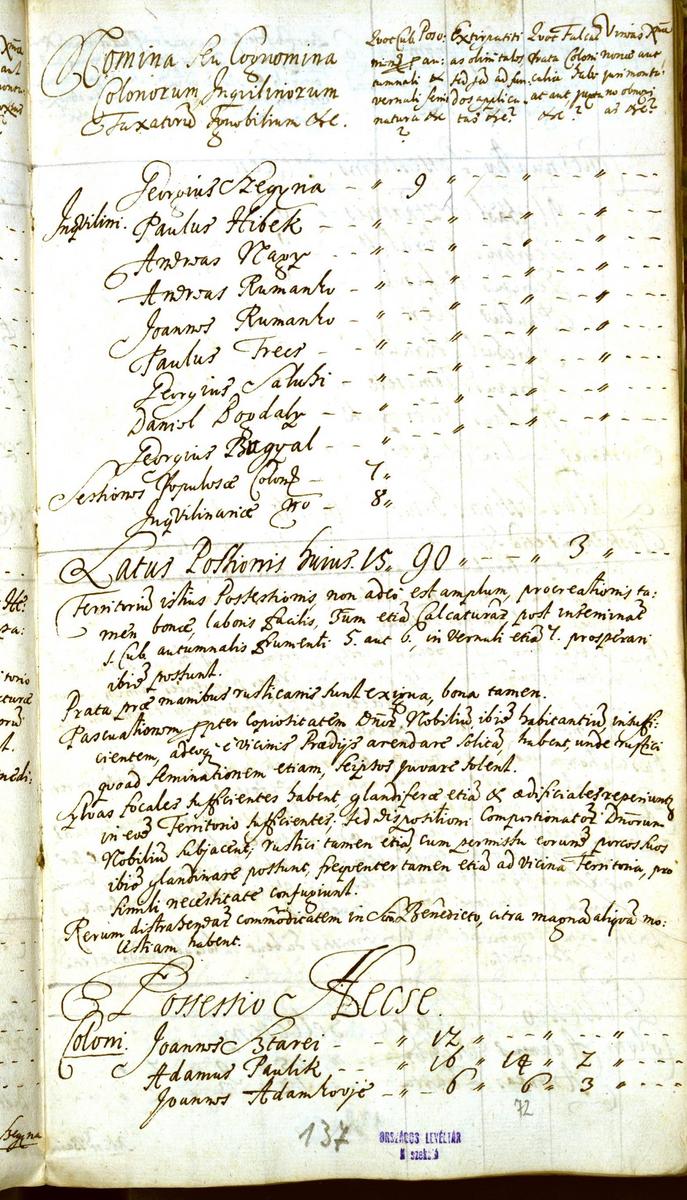 Nomina seu Cognomina
Colonorum Inqvilinorum
Taxatorū Ignobilium &c.
Quot Cub: Poso:
minens. au:
tumnali &
vernali semi
natura &c
?
Extirpatiti
as olim tales
sed jam ad fun
dos applica:
tas &c?
Quot Falcas
Prata Coloni
culia Sub
at aut juxta
&c ?
Vineas Xmã
nonae aut
juri montã:
no obnoxi
as &c?
Georgius Szegyna - " 9 " - " - - " - - -
Inqvilini. Paulus Hibek - " - - " - - " - - " - - -
Andreas Nagy - " - - " - - " - - " - - -
Andreas Rumanko - " - - " - - " - - " - - -
Joannes Rumanko - " - - " - - " - - " - - -
Paulus Trecs - " - - " - - " - - " - - -
Georgius Saluki - " - - " - - " - - " - - -
Daniel Bogdaly - " - - " - - " - - " - - -
Georgius Bagyal - "
Sessiones Populosae Colon 7"
Inqvilinariae ro 8"
Latus Possionis huius. 15" 90 " - - " 3 " - - -
Territoriū istius Possessionis, non adeo est amplum, procreationis ta:
men bonae, laboris facilis, Tum etiā Calcaturae, post inseminat
1. Cub. autumnalis frumenti 5. aut 6, in Vernali etiā 7. prosperari
ibiē possunt.
Prata prae manibus rusticanis sunt exigua, bona tamen.
Pascuationem ppter copiositatem Dnor. Nobiliū ibiē habitantiū insuffi:
cientem, adeoq; è vicinis Praedijs arendare solitā, habent, unde rustici
quoad seminationem etiam, seipsos juvare solent.
Sylvas focales sufficientes habent, glandiferae etiā & aedificiales reperiuntr
in eoē Territorio sufficientes; sed dispositioni Compossionator Dnorum
Nobiliū subjacent; rustici tamen etiā, cum permissu eorum, porcos suos
ibiē glandinare possunt, freqventer tamen etiā ad vicina Territoria, pro
simili necessitate confugiunt.
Rerum distrahendar commoditatem in Sen Benedicto, citra magnā aliqvā mo:
lestiam habent.
Possessio Hecse.
Coloni. Joannes Sztarei - - " 12 " - - " - - " - - -
Adamus Paulik - - " 16 " 14 " 2 " - - -
Joannes Adamkovje - " - 6 " 6 " 3 " - - -
72
137
ORSZÁGOS LEVÉLTÁR
N szekció